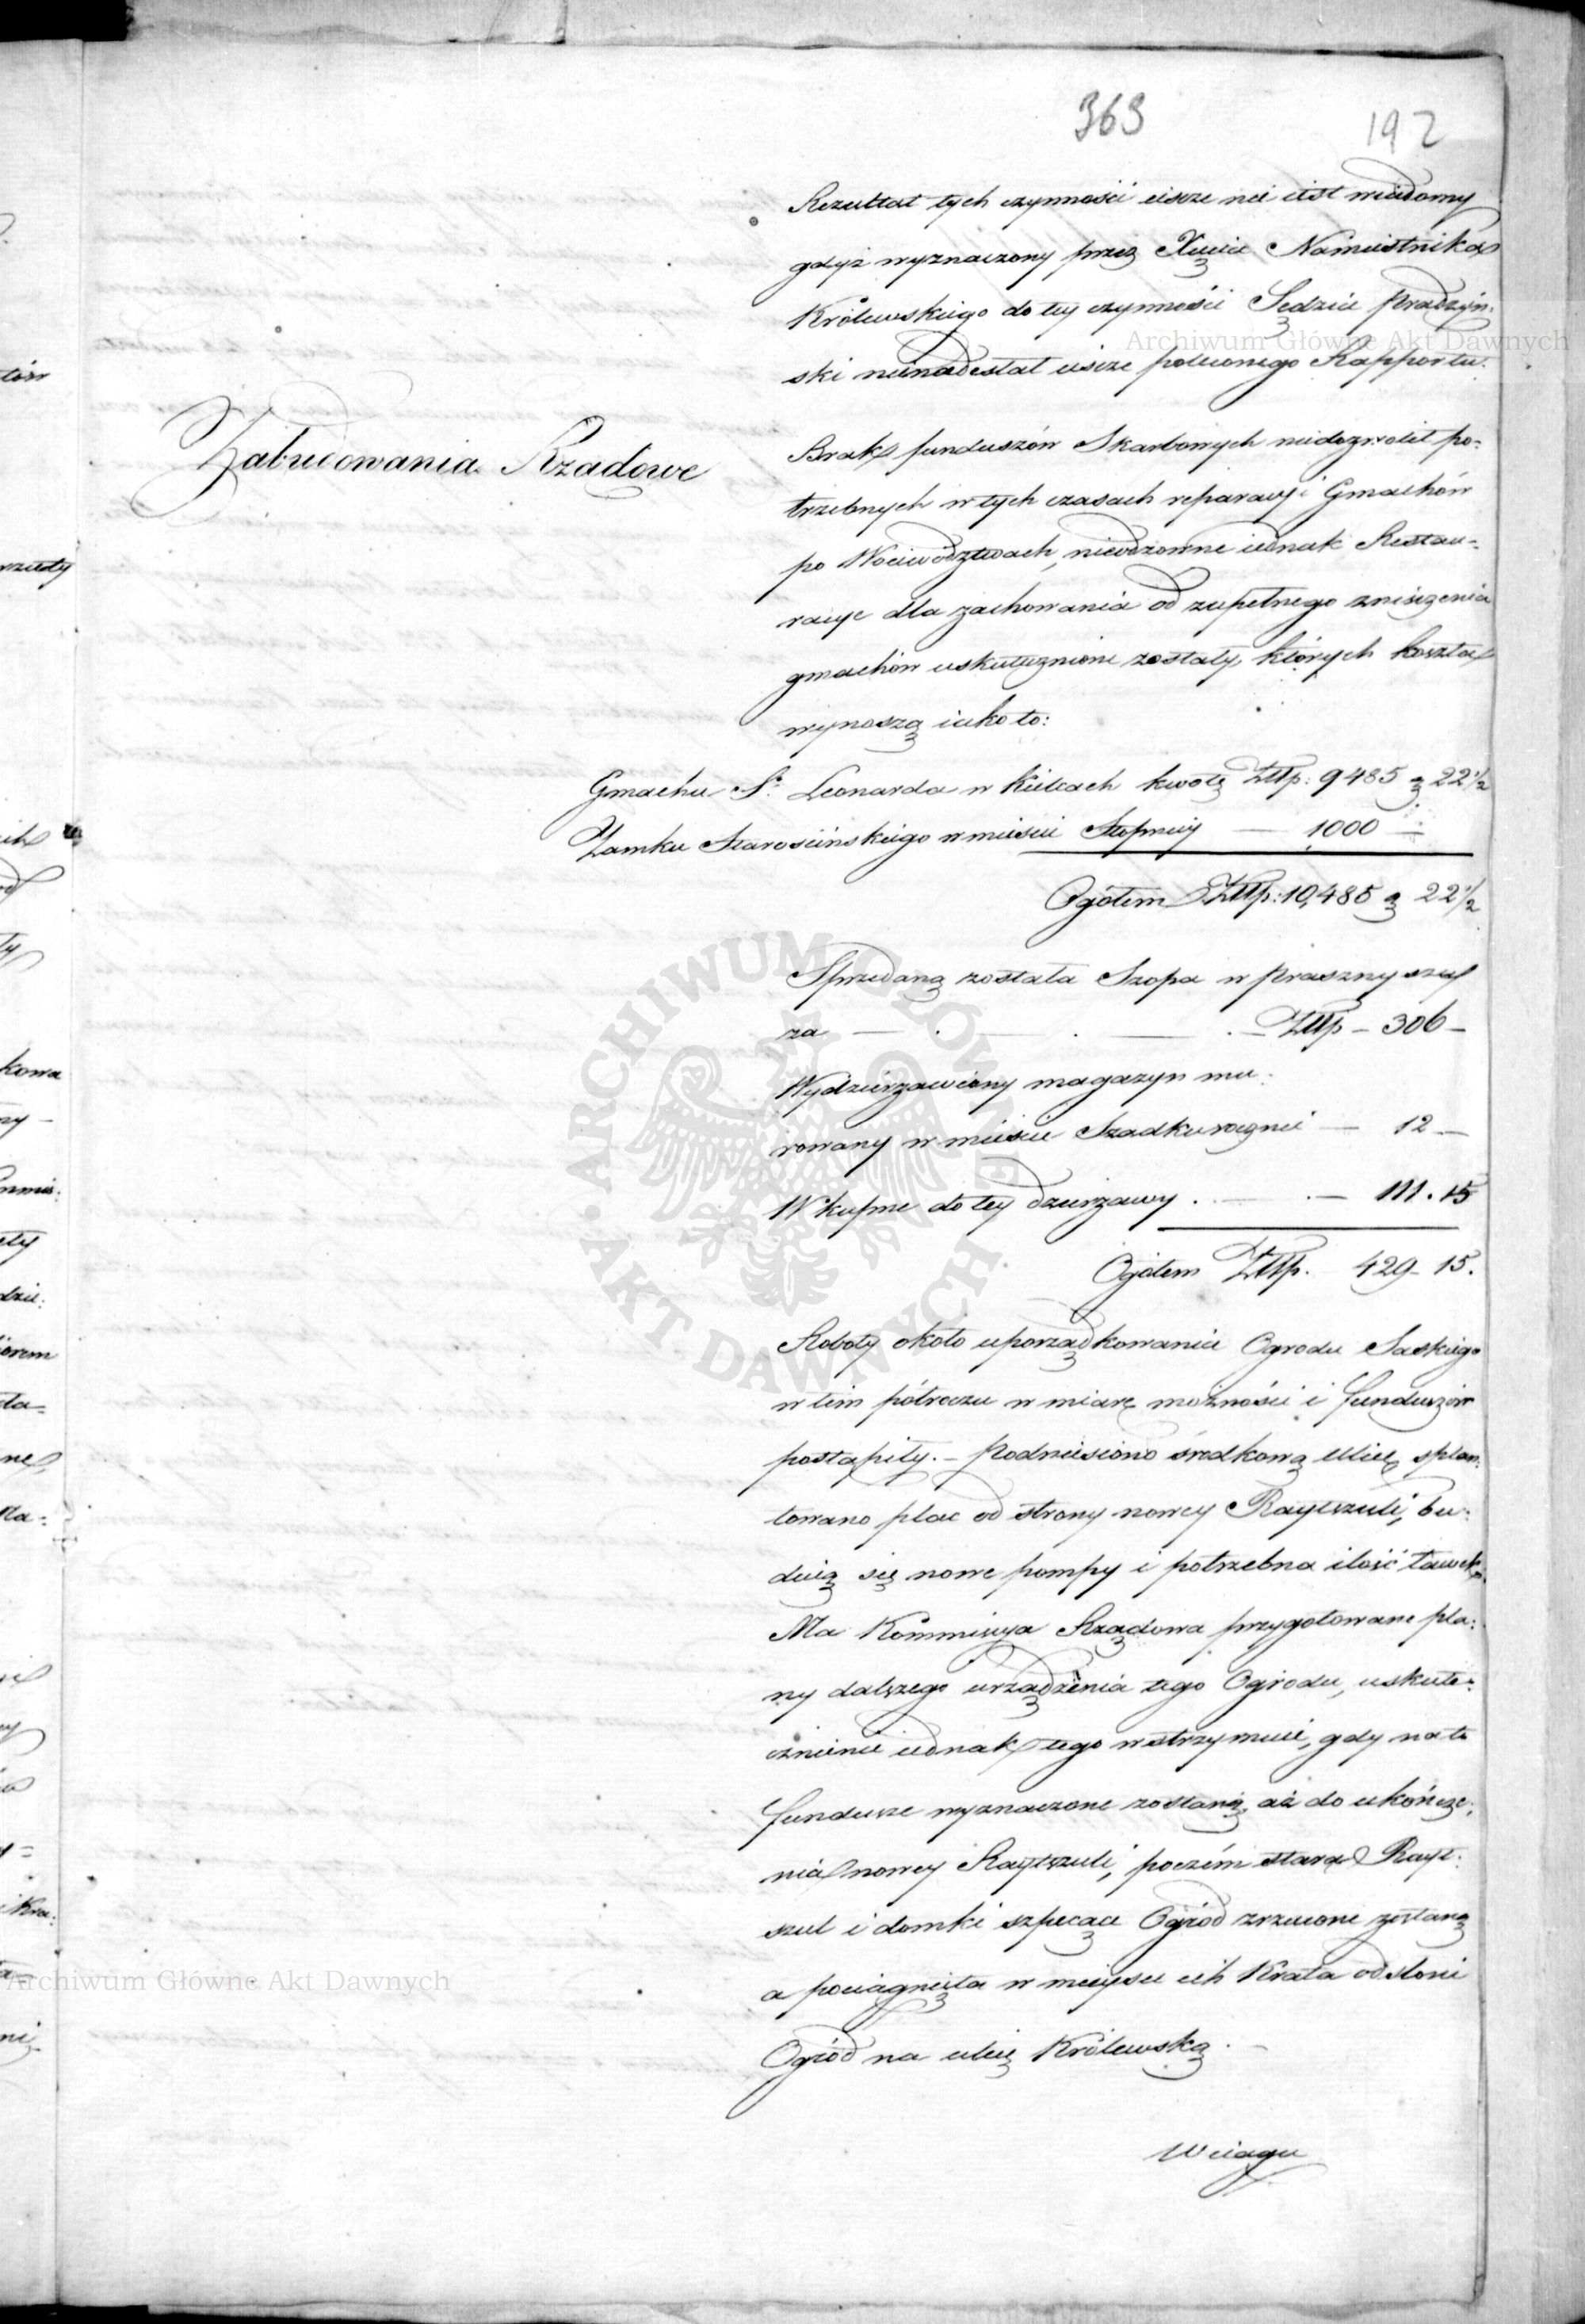 363
192
Rezultat tych czynności ieszcze nie iest wiadomy
gdyż wyznaczony przez Xięcia Namiestnika
Królewskiego do tey czynności Sędzia Prądzyń-
ski nienadesłał ieszcze poleconego Rapportu.
Zabudowania Rządowe
Brak funduszów Skarbowych niedozwolił po-
trzebnych w tych czasach reparacyi Gmachów
po Woiewództwach, nieodzowne iednak Restau-
racye dla zachowania od zupełnego zniszczenia
gmachów uskutecznione zostały, których koszta
wynoszą iako to:
Gmachu St. Leonarda w Kielcach kwotę Złłp: 9485 g 22 1/2
Zamku Starościńskiego w mieście Stopnicy — 1,000 —
Ogółem Złłp: 10,485 g 22 1/2
Sprzedaną została Szopa w Prasznyszu
za — . — . — . — Złłp — 306 —
Wydzierżawiony magazyn mu-
rowany w mieście Szadku rocznie — 12 —
Wkupne do tey dzierżawy . — . — 111 . 15
Ogółem Złłp. 429 — 15.
Roboty około uporządkowania Ogrodu Saskiego
w tém półroczu w miarę możności i funduszów
postąpiły. — Podniesiono środkową ulicę, splan-
towano plac od strony nowey Raytszuli, bu-
duią się nowe pompy i potrzebna ilość ławek.
Ma Kommissya Rządowa przygotowane pla-
ny dalszego urządzenia tego Ogrodu, uskute-
cznienie iednak tego wstrzymuie, gdy na to
fundusze wyznaczone zostaną, aż do ukończe-
nia nowey Raytszuli, poczém stara Rayt-
szul i domki szpecące Ogród zrzucone zostaną
a pociągnięta w mieyscu ich Krata odsłoni
Ogród na ulicę Królewską. —
W ciągu
Archiwum Główne Akt Dawnych
Archiwum Główne Akt Dawnych
ARCHIWUM GŁÓWNE • AKT DAWNYCH •